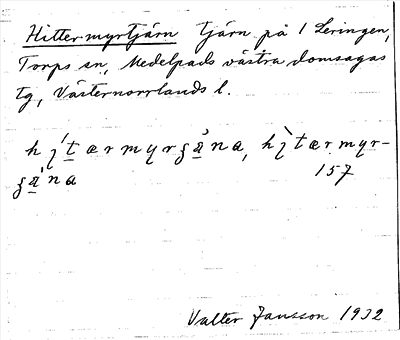 Hittermyrtjärn tjärn på 1 Leringen,
Torps sn, Medelpads västra domsagas
tg, Västernorrlands l.
157
Valter Jansson 1932